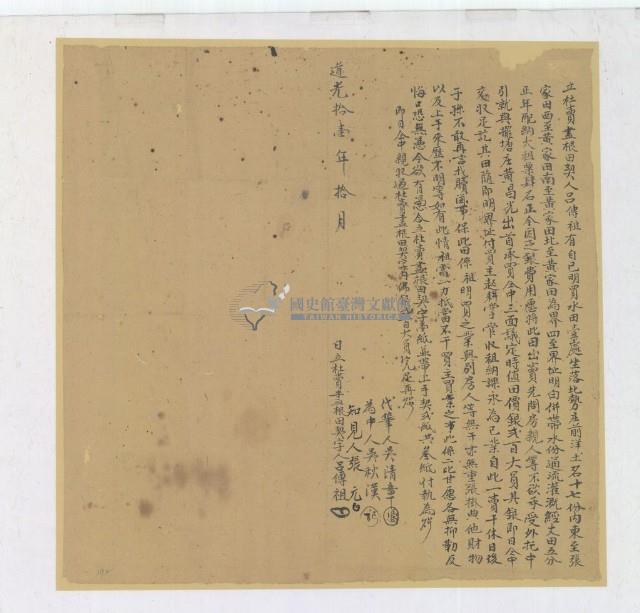 立杜賣盡根田契人呂傳祖有自己明買水田壹處坐落北勢庄前洋土名十七份內東至張
家田西至黃家田南至黃家田北至黃家田為界四至界址明白併帶水份通流灌溉經丈田五分
正年配納大租粟肆石正今因乏銀費用愿將此田出賣先問房親人等不欲承受外托中
引就與擺塘庄黃昌光出首承買仝中三面議定時值田價銀弍百大員其銀即日仝中
交收足訖其田隨即明界址付買主起耕掌管收租納課永為己業自此一賣千休日後
子孫不敢再言找贖滋事保此田係祖明買之業與別房人等無干亦無重張掛典他財物
以及上手來歷不明等如有此情祖當一力抵當不干買主買業之事此係二比甘愿各無抑勒反
悔口恐無憑今欲有憑合立杜賣盡根田契字壹紙並帶上手契弍紙共叁紙付執為炤
即日仝中親收過杜賣盡根田契字內佛銀弍百大員完足再炤
代筆人吳清章
為中人吳秋漢
知見人張元
道光拾壹年拾月 日立杜賣盡根田契字人呂傳祖
國史館臺灣文獻館
TAIWAN HISTORICA